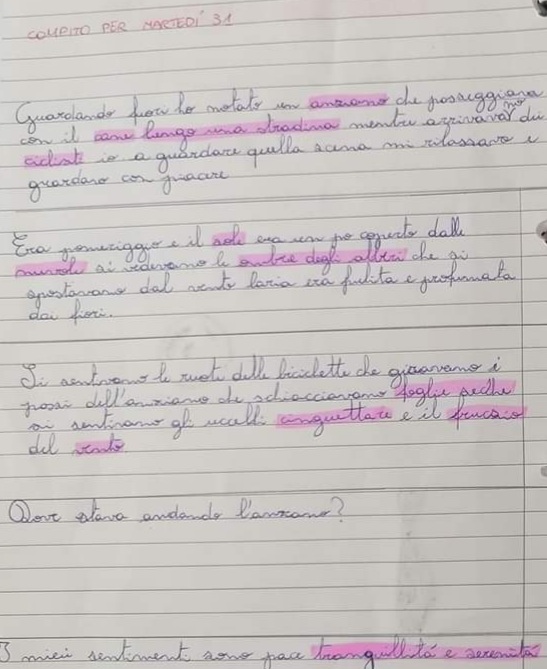 COMPITO PER MARTEDÌ 31
Guardando fuori ho notato un anziano che passeggiava
con il cane lungo una stradina mentre arrivavano dei
ciclisti io a guardare quella scena mi rilassavo e
guardavo con piacere
Era pomeriggio e il sole era un po coperto dalle
nuvole si vedevano le ombre degli alberi che si
spostavano dal vento laria era pulita e profumata
dai fiori.
Si sentivano le ruote delle biciclette che giravano i
passi dell'anziano che schiacciavano foglie secche
si sentivano gli uccelli cinguettare e il fruscio
del vento
Dove stava andando l'anziano?
I miei sentimenti sono pace tranquillità e serenità